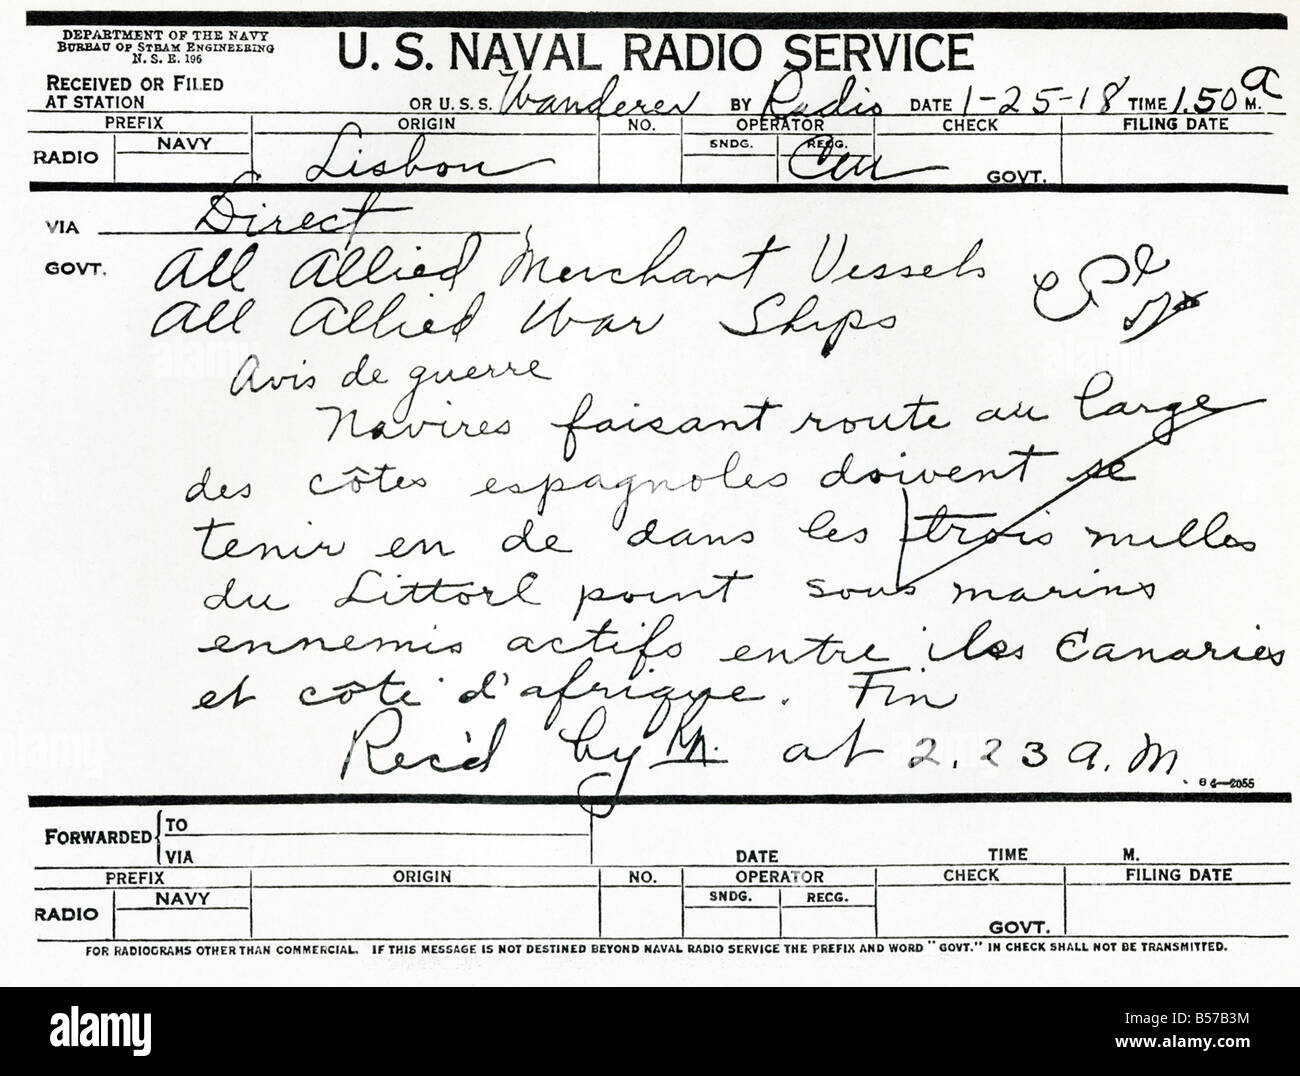 DEPARTMENT OF THE NAVY
BUREAU OF STEAM ENGINEERING
N. S. E. 196
U. S. NAVAL RADIO SERVICE
RECEIVED OR FILED
AT STATION OR U.S.S. Wanderer BY Radio DATE 1-25-18 TIME 1.50 a M.
PREFIX ORIGIN NO. OPERATOR CHECK FILING DATE
RADIO NAVY Lisbon SNDG. RECG. GOVT.
VIA Direct
GOVT. All Allied Merchant Vessels
All Allied War Ships
Avis de guerre
Navires faisant route au large
des côtes espagnoles doivent se
tenir en de dans les trois milles
du Littorl point sous marins
ennemis actifs entre iles Canaries
et côte d'afrique. Fin
Rec'd by at 2.23 a.m.
84-2055
FORWARDED TO
VIA DATE TIME M.
PREFIX ORIGIN NO. OPERATOR CHECK FILING DATE
RADIO NAVY SNDG. RECG. GOVT.
FOR RADIOGRAMS OTHER THAN COMMERCIAL. IF THIS MESSAGE IS NOT DESTINED BEYOND NAVAL RADIO SERVICE THE PREFIX AND WORD "GOVT." IN CHECK SHALL NOT BE TRANSMITTED.
alamy
Image ID: B57B3M
www.alamy.com